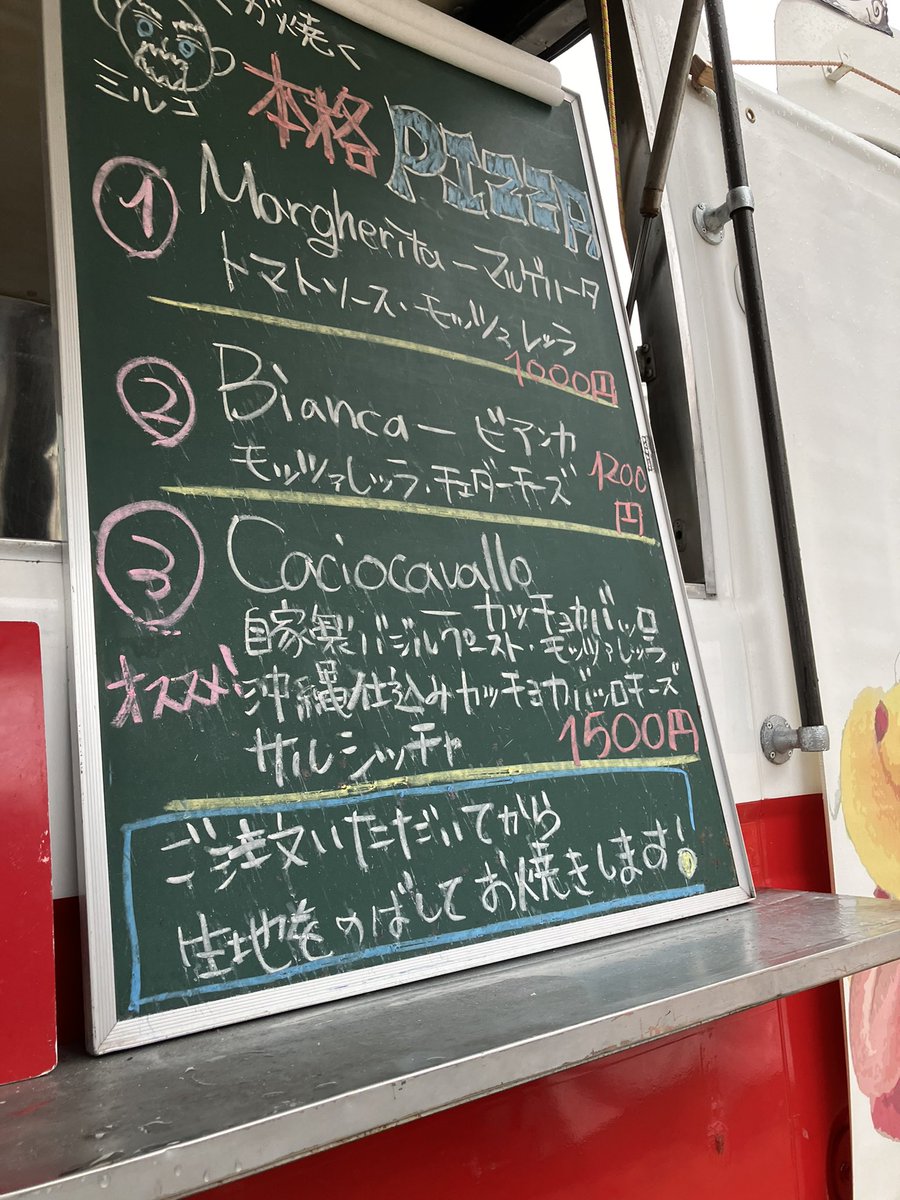 が焼く
ミルコ
本格 PIZZA
① Margherita ー マルゲリータ
トマトソース・モッツァレッラ
1000円
② Bianca ー ビアンカ
モッツァレッラ・チェダーチーズ
1200円
③ Caciocavallo
ー カッチョカバッロ
自家製バジルペースト・モッツァレッラ
オススメ!
沖縄仕込みカッチョカバッロチーズ
サルシッチャ
1500円
ご注文いただいてから
生地をのばしてお焼きします!